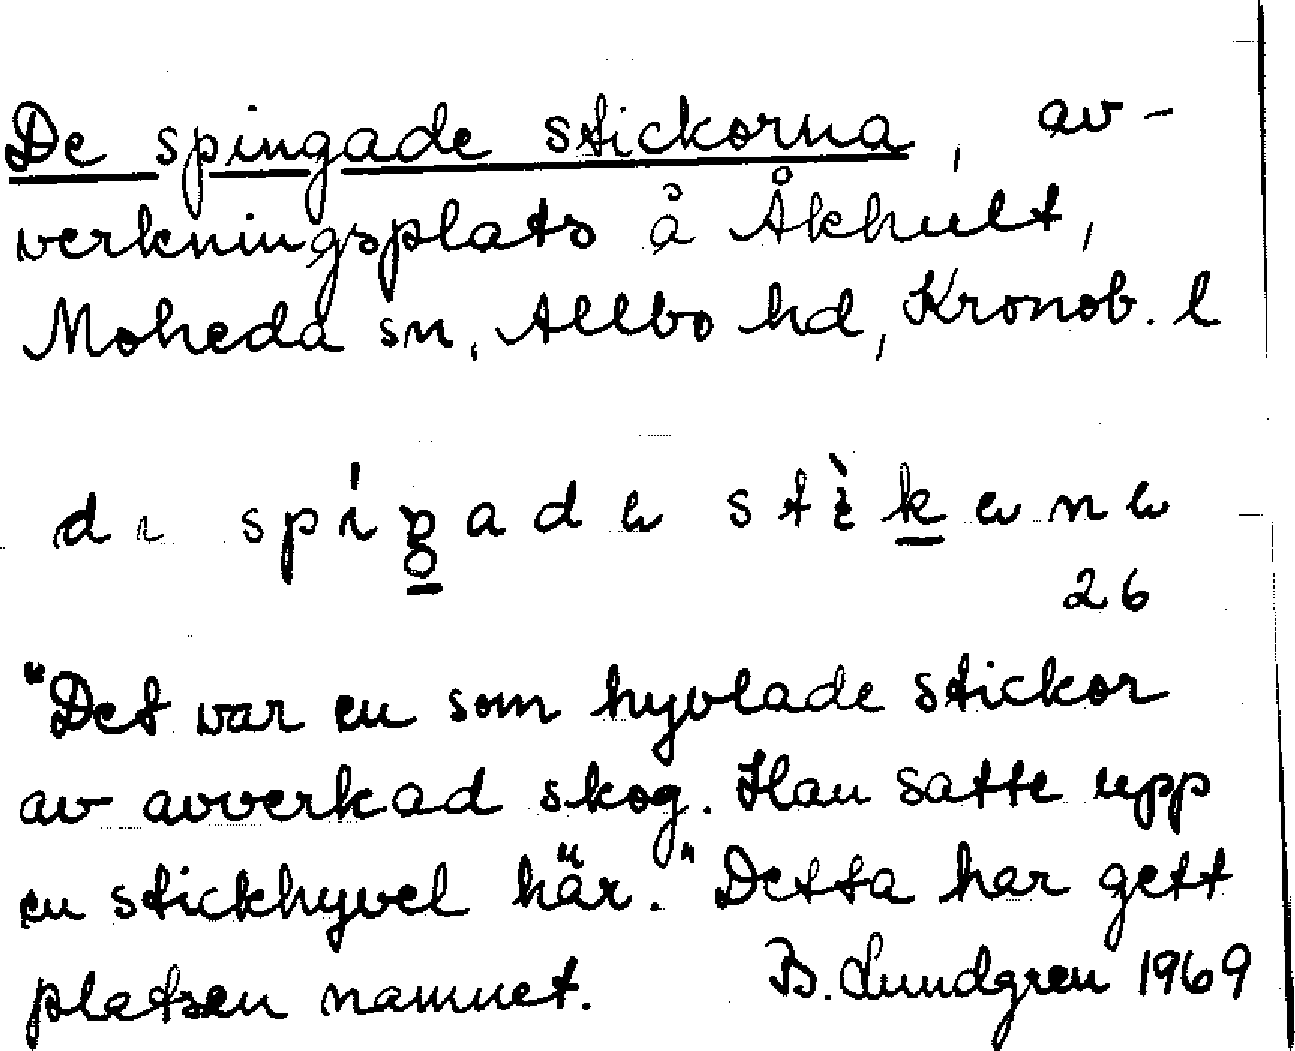 De spingade stickorna, av-
verkningsplats å Åkhult,
Moheda sn, Allbo hd, Kronob. l
26
"Det var en som hyvlade stickor
av avverkad skog. Han satte upp
en stickhyvel här." Detta har gett
platsen namnet. B. Lundgren 1969